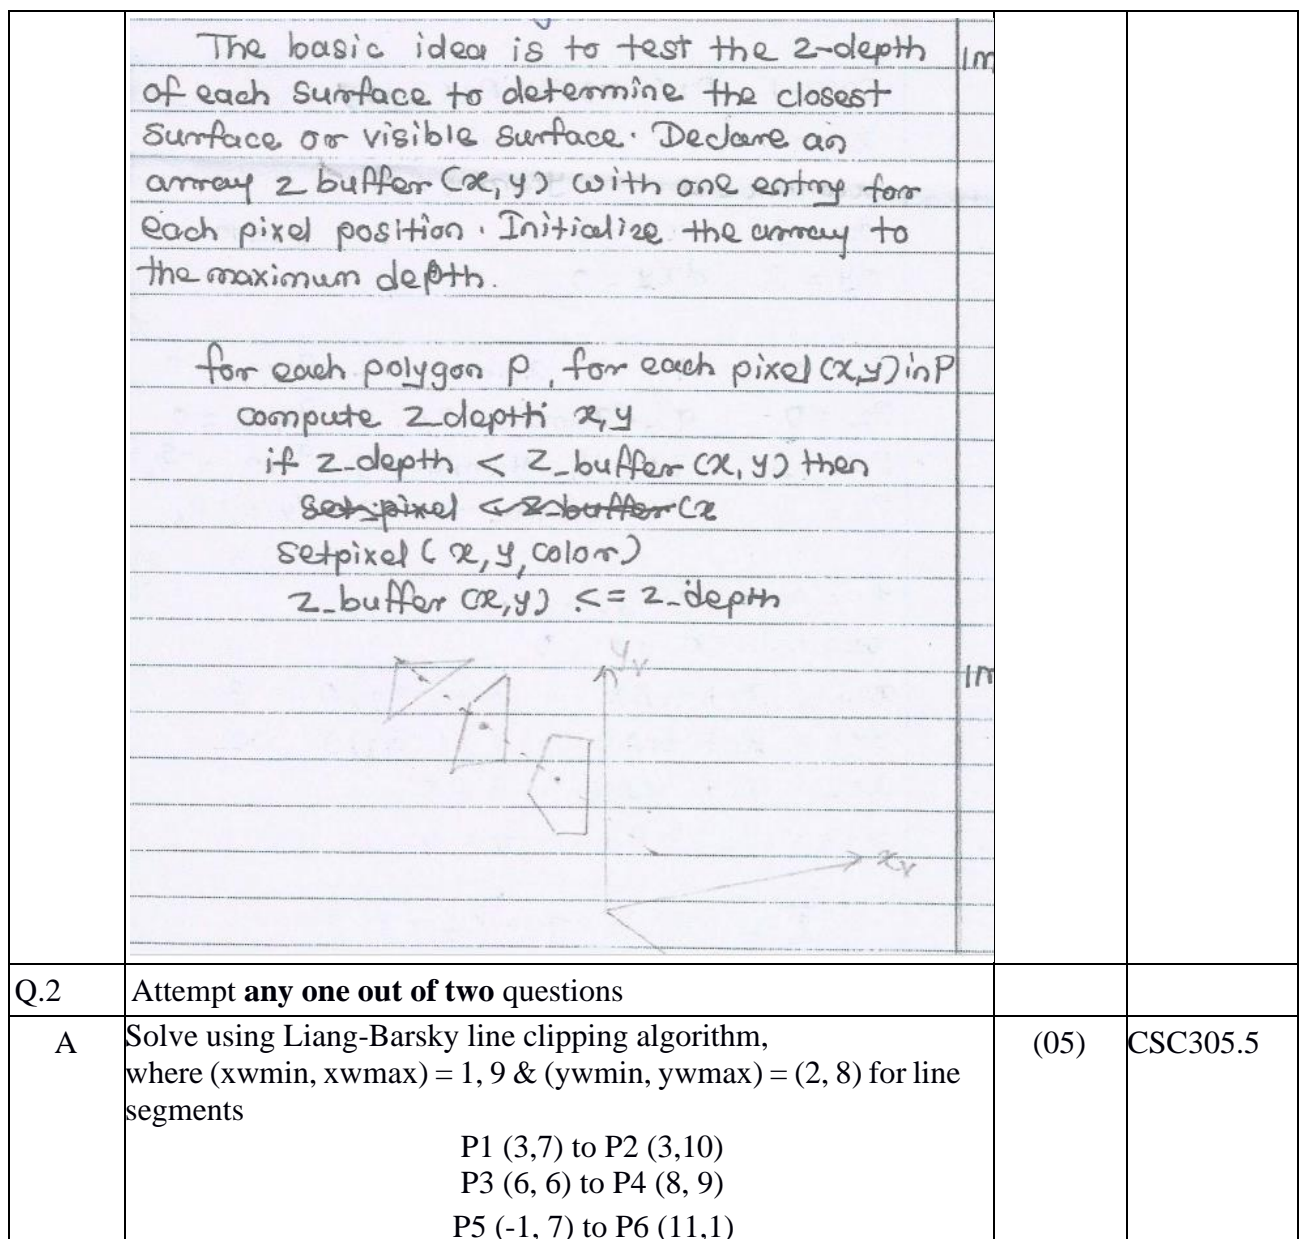 The basic idea is to test the z-depth
of each surface to determine the closest
surface or visible surface. Declare an
array z buffer (x, y) with one entry for
each pixel position. Initialize the array to
the maximum depth.
for each polygon P, for each pixel (x,y) in P
compute z_depth x, y
if z_depth < z_buffer (x, y) then
set_pixel < z_buffer (x
setpixel (x, y, color)
z_buffer (x,y) <= z_depth
1m
yv
1m
xv
Q.2 Attempt any one out of two questions
A Solve using Liang-Barsky line clipping algorithm, (05) CSC305.5
where (xwmin, xwmax) = 1, 9 & (ywmin, ywmax) = (2, 8) for line
segments
P1 (3,7) to P2 (3,10)
P3 (6, 6) to P4 (8, 9)
P5 (-1, 7) to P6 (11,1)